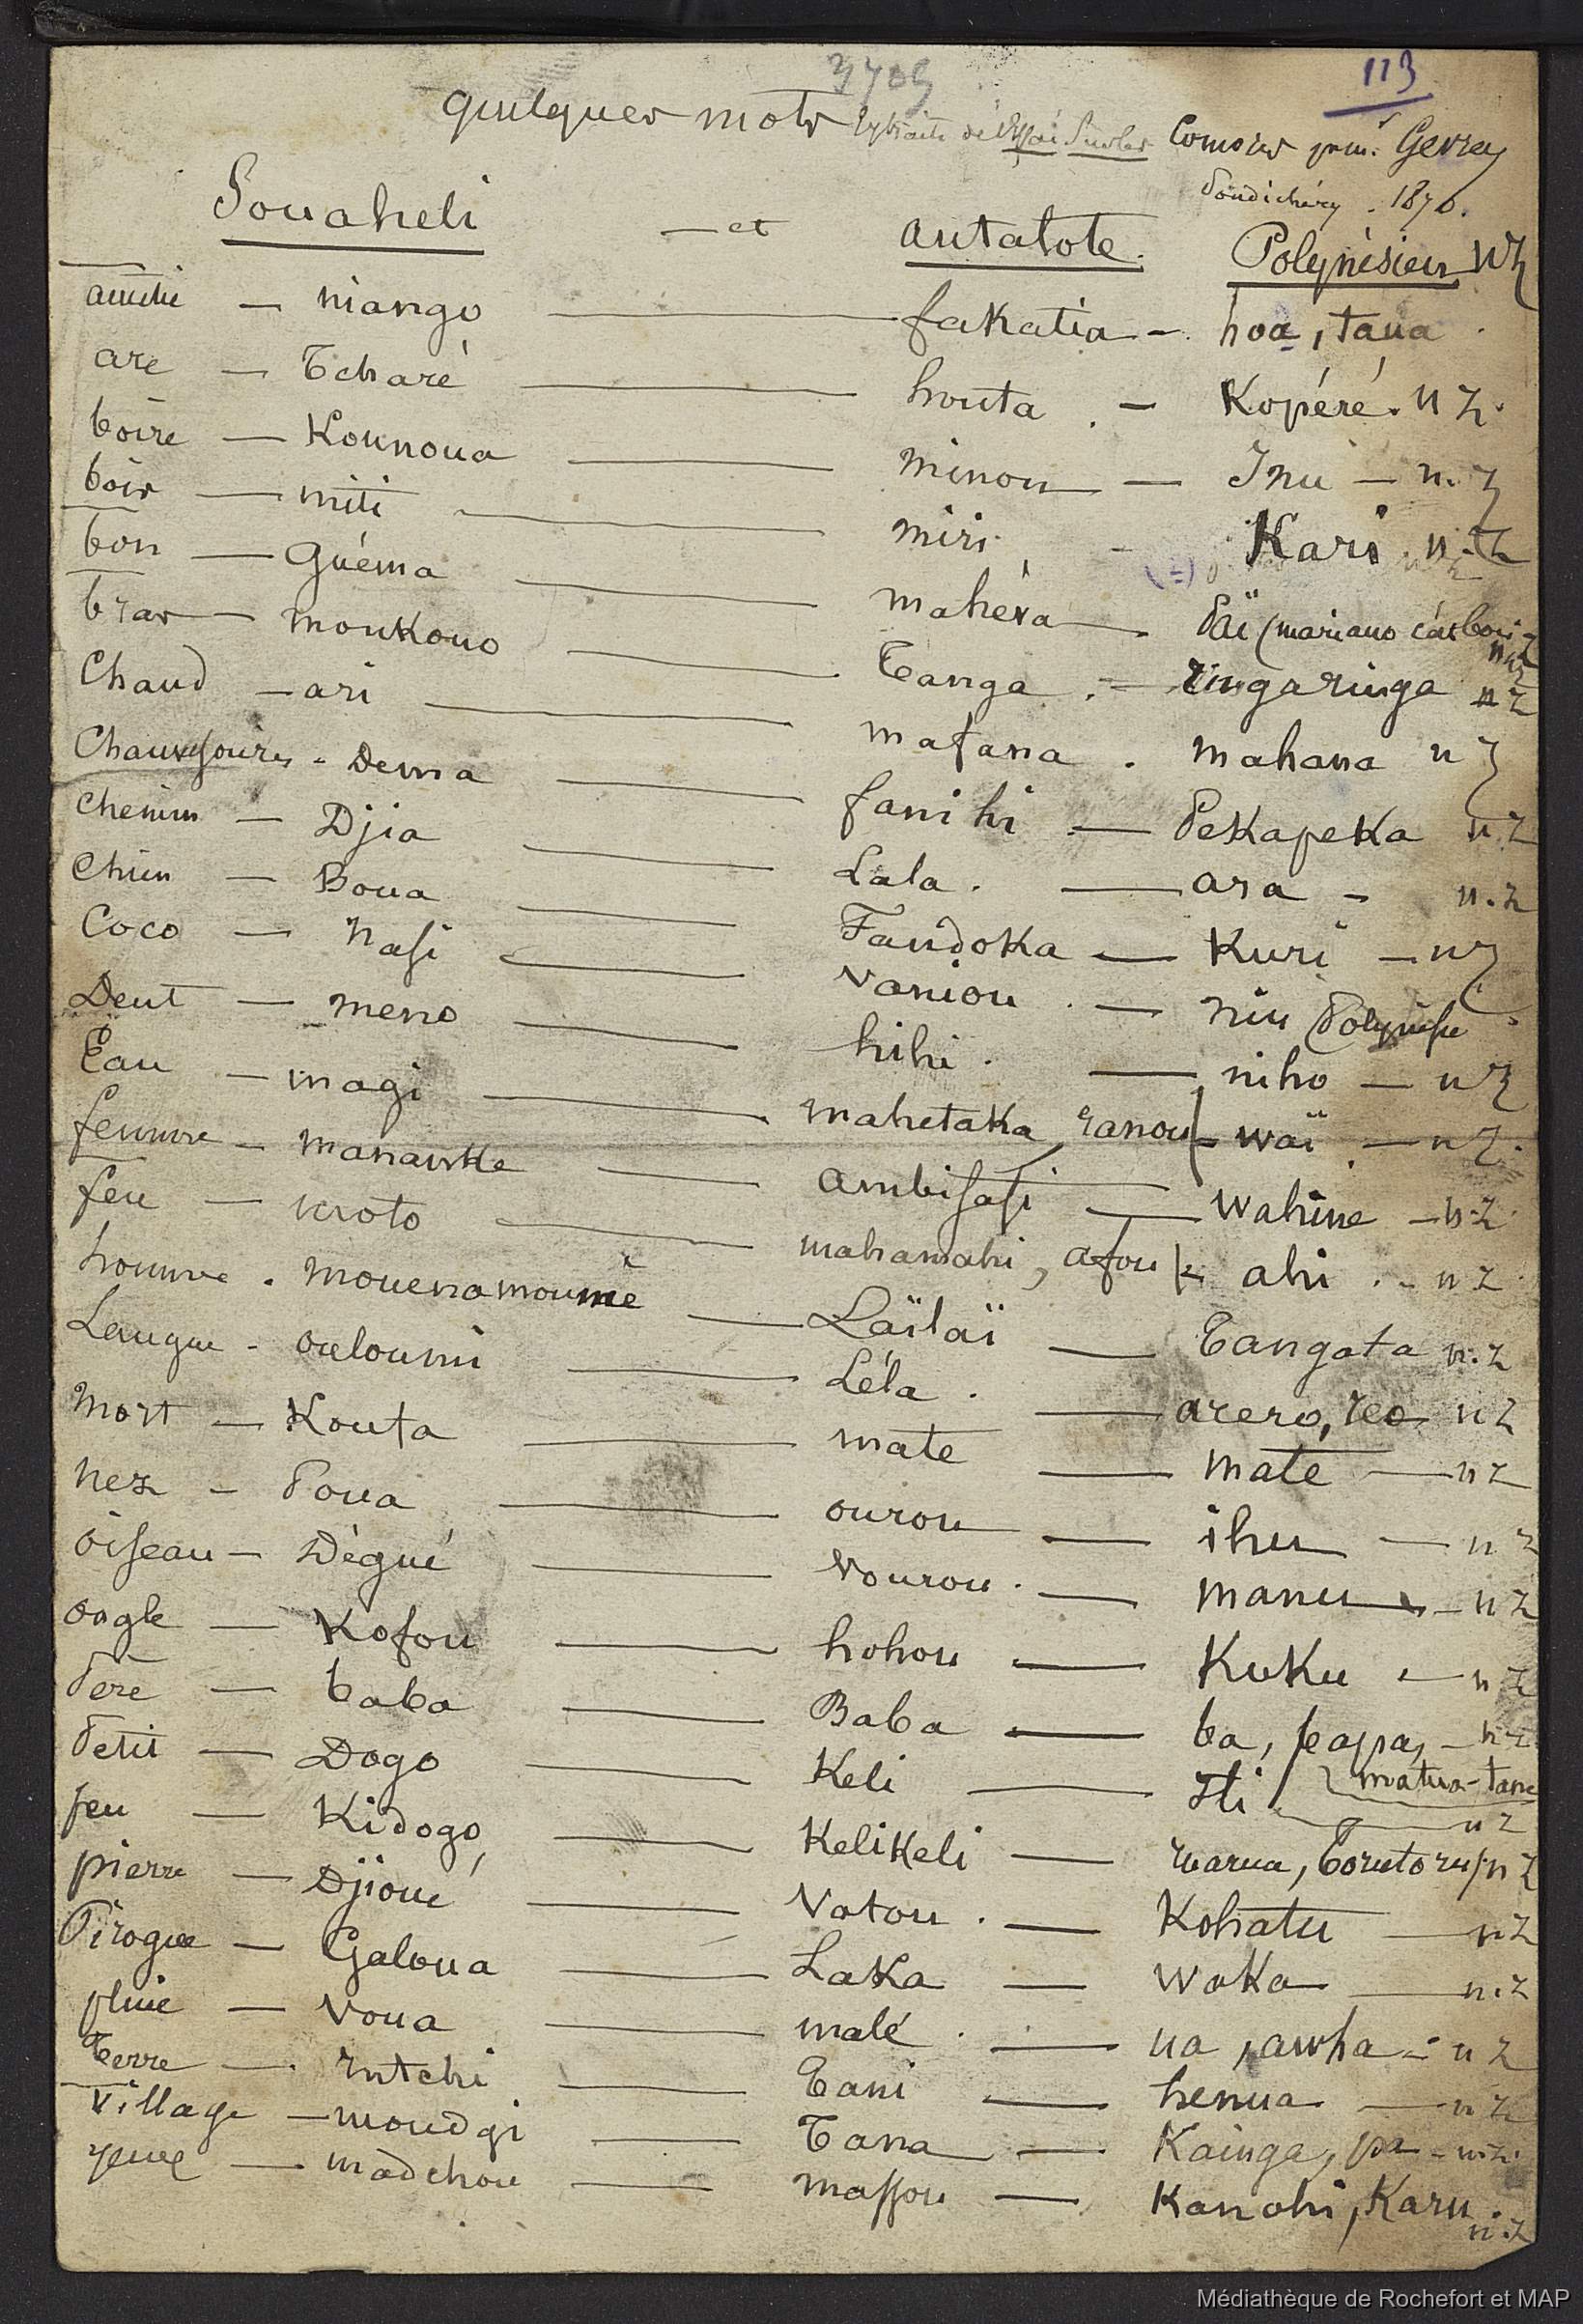 3709
113
quelques mots Extraits de l'Essai Sur les Comores par Mr Gevrey
Pondichéry . 1870.
Souaheli — et antalote. Polynésien NZ
amitié — niango — fakatia — hoa, taua
arc — Tcharé — houta . — Kopéré. N Z.
boire — Kounoua — minou — Inu — n. z
bois — miti — miri — Kari . n. Z
bon — Guéma — mahéva — Païï (mariano
bras — moukouo — Tanga . — ringaringa n Z
Chaud — ari — mafana . mahana n Z
Chauvesouris - Dema — fanihi — Pekapeka n. Z
Chemin — Djia — Lala . — ara — n. z
Chien — Boua — Fandoka — Kuri — n Z
Coco — Nasi — Vaniou . — niu (Polynésie
Dent — meno — hihi . — niho — n Z
Eau — magi — mahetaka, ranou — waï . — n Z.
femme — manamke — ambisafi — Wahine — n. Z.
feu — moto — mahamahi, afou — ahi . - n Z.
homme . mouenamoumé — Laïlaï — Tangata n. Z
Langue - ouloumi — Léla . — arero, reo n Z
Mort — Koufa — mate — mate — n Z
nez — Poua — ourou — ihu — n Z
oiseau — Dégué — Vourou . — manu — n Z
ongle — Kofou — hohou — Kuku — n Z
Père — baba — Baba — ba, papa, — n Z
matua-tane
Petit — Dogo — Keli — Iti n Z
peu — Kidogo — Kelikeli — ruarua, Torutoru n Z
pierre — Djioué — Vatou . — Kohatu — n Z
Pirogue — Galoua — Laka — Waka — n. Z
pluie — Voua — malé . — ua , awha — n Z
terre — . Intchi — Tani — henua — n Z
Village — moudgi — Tana — Kainga, pa - n. Z.
yeux — madchou — massou — Kanohi, Karu .
n. Z
Médiathèque de Rochefort et MAP